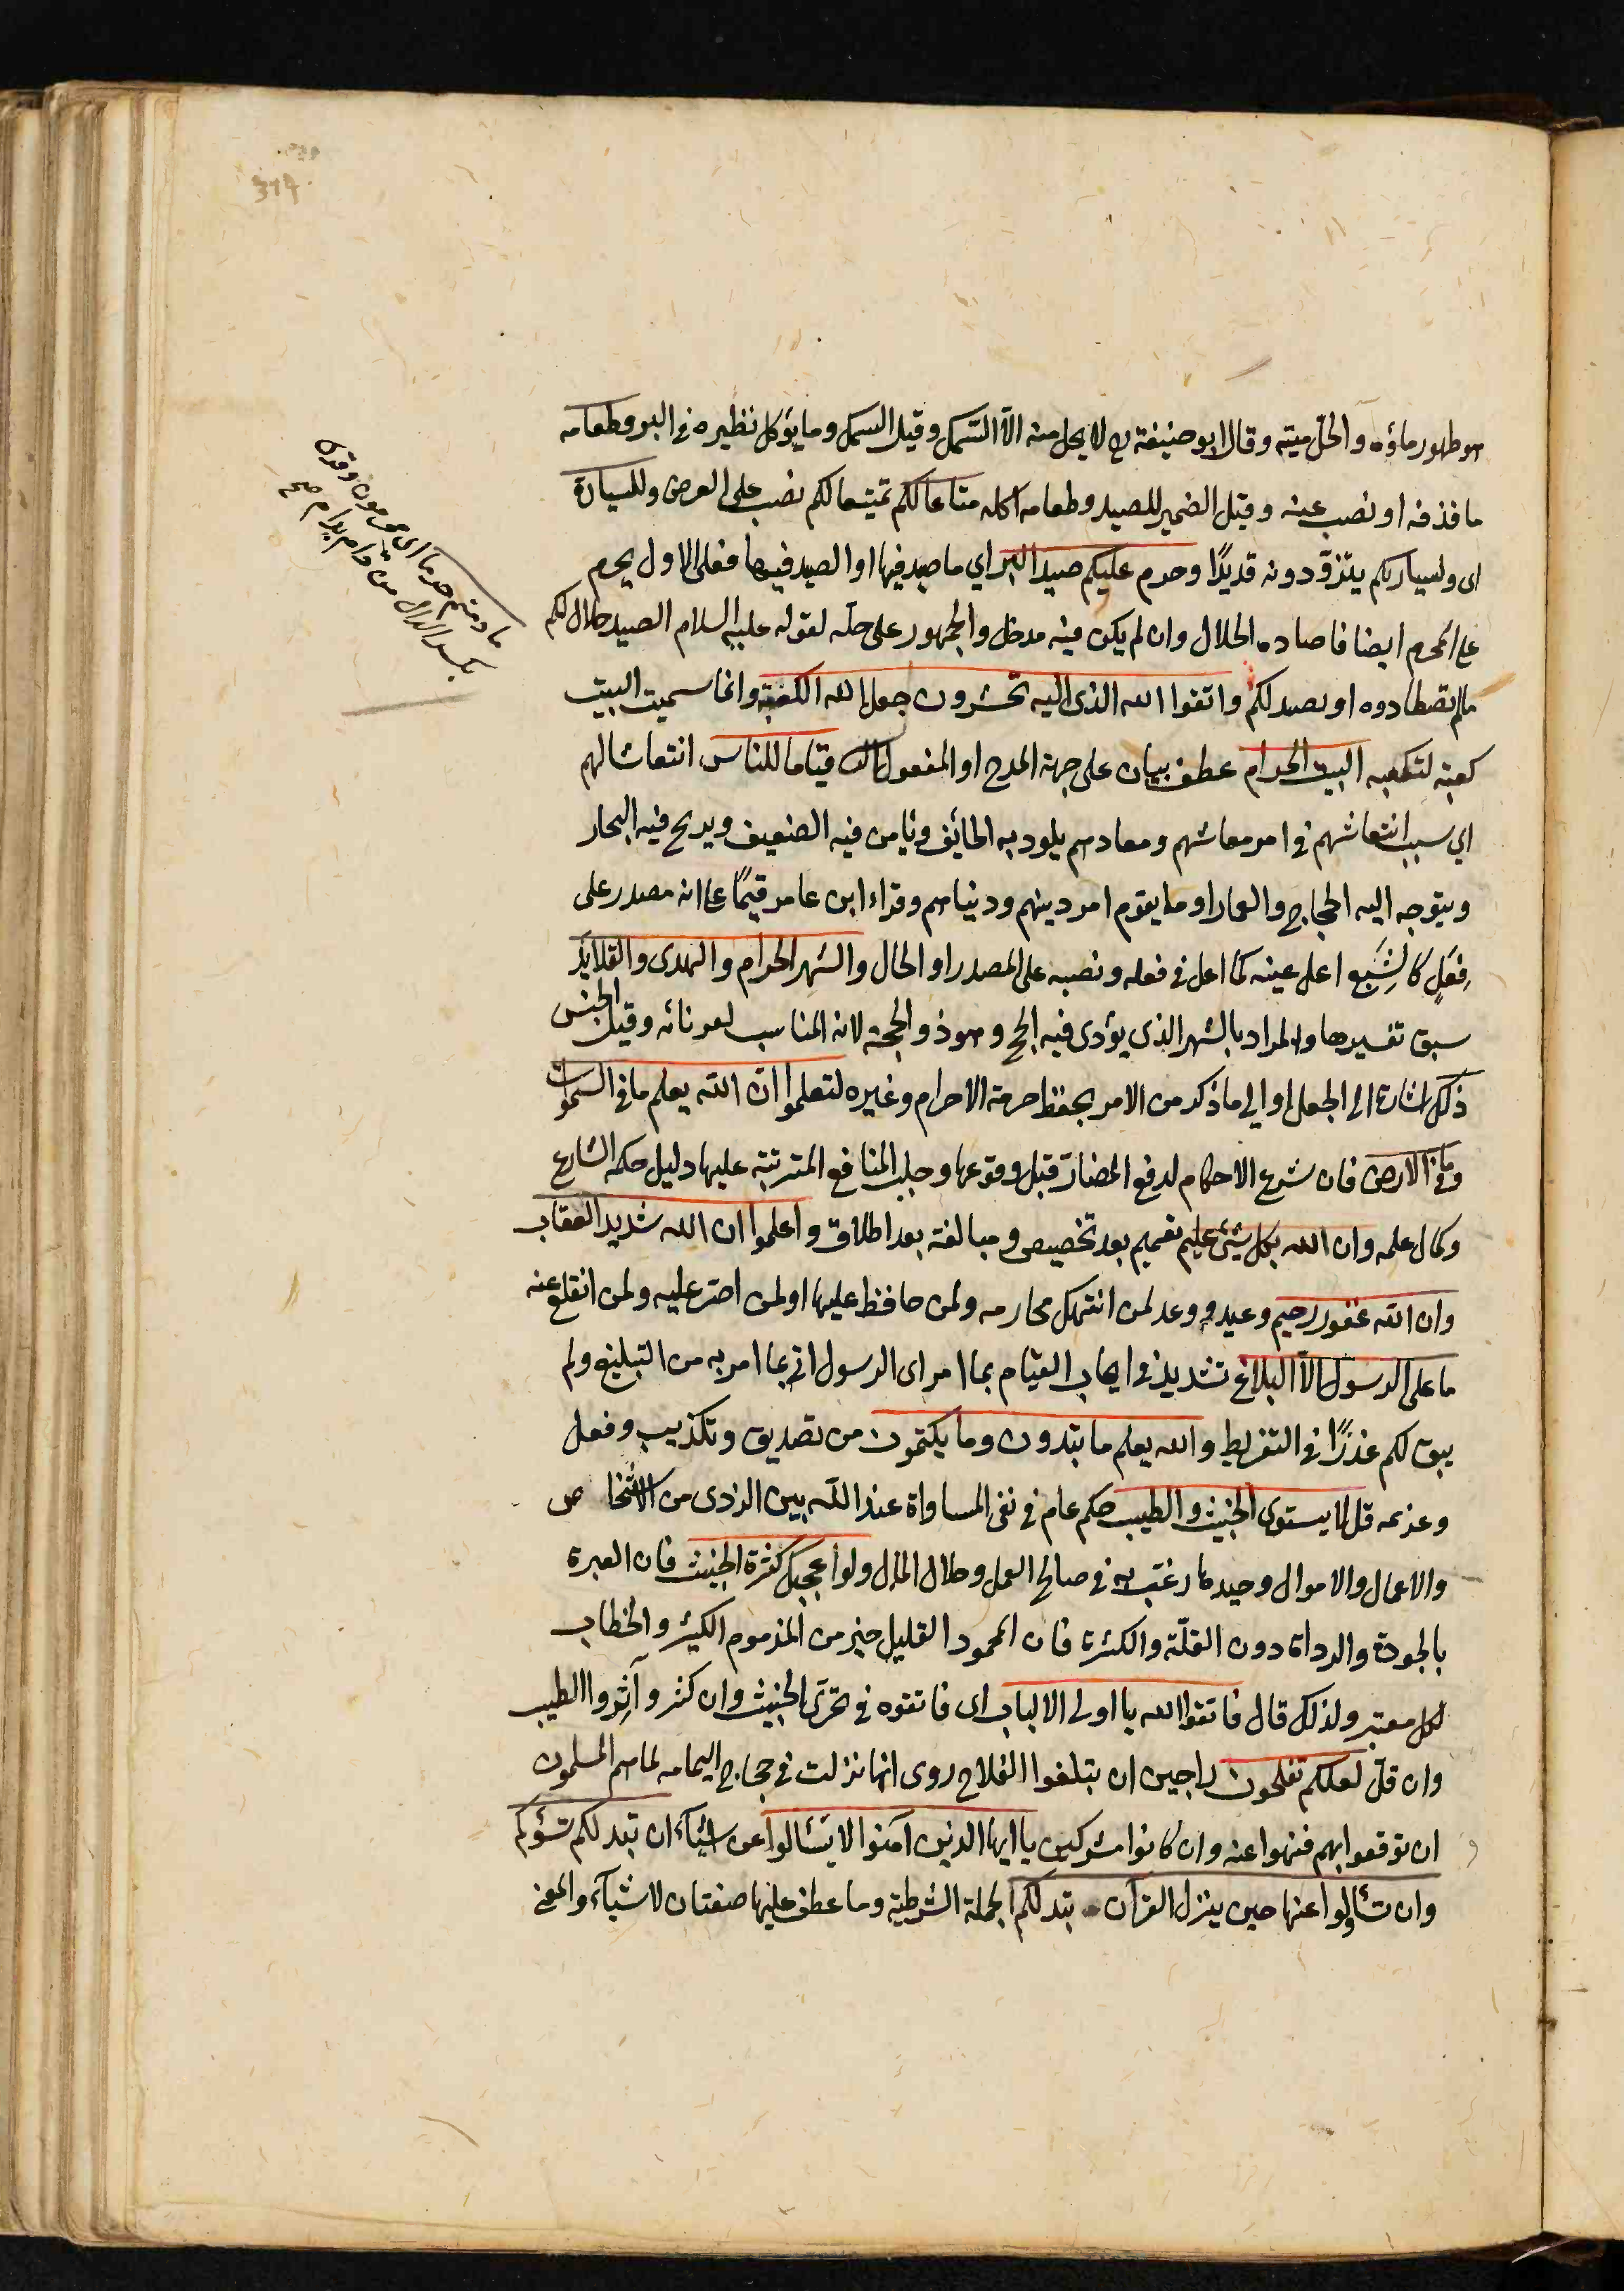 هو طهور ماؤه والحل ميته وقال ابو حنيفة رح لا يحل منه الا السمك وقيل السمك وما يؤكل نظيره في البر وطعامه
ما قذفه او نضب عنه وقيل الضمير للصيد وطعامه اكله متاعا لكم تمتيعا لكم نصب على الغرض وللسيارة
اى ولسيارتكم يتزوّدونه قديدًا وحرم عليكم صيد البر اي ما صيد فيها او الصيد فيها فعلى الاول يحرم
على المحرم ايضا فاصاده الحلال وان لم يكن فيه مدخل والجمهور على حله لقوله عليه السلام الصيد حلال لكم
مالم تصطادوه او يصد لكم واتقوا الله الذى اليه تحشرون جعل الله الكعبة وانما سميت البيت
كعبة لتكعبه البيت الحرام عطف بيان على جهة المدح او المفعول الثاني قياما للناس انتعاشا لهم
اي سبب انتعاشهم في امر معاشهم ومعادهم يلود به الخائف ويامن فيه الضعيف ويربح فيه التجار
ويتوجه اليه الحجاج والعمار او ما يقوم امر دينهم ودنياهم وقراء ابن عامر قيمًا على انه مصدر على
فِعَل كالشِبَع اعل عينه كما اعل في فعله ونصبه على المصدر او الحال والشهر الحرام والهدى والقلايد
سبق تفسيرها والمراد بالشهر الذي يؤدى فيه الحج وهو ذو الحجة لانه المناسب لقرنائه وقيل الجنس
ذلك اشارة الى الجعل او الي ما ذكر من الامر بحفظ حرمة الاحرام وغيره لتعلموا ان الله يعلم ما في السموات
وما في الارض فان شرع الاحكام لدفع المضار قبل وقوعها وجلب المنافع المترتبة عليها دليل حكمة الشارع
وكمال علمه وان الله بكل شئ عليم تعميم بعد تخصيص ومبالغة بعد اطلاق واعلموا ان الله شديد العقاب
وان الله غفور رحيم وعيد ووعد لمن انتهك محارمه ولمن حافظ عليها او لمن اصر عليه ولمن انقلع عنه
ما على الرسول الا البلاغ تشديد في ايجاب القيام بما امر اى الرسول اتى بما امر به من التبليغ ولم
يبق لكم عذرًا في التفريط والله يعلم ما تبدون وما تكتمون من تصديق وتكذيب وفعل
وعزيمة قل لا يستوي الخبيث والطيب حكم عام في نفى المساواة عند الله بين الردى من الاشخاص
والاعمال والاموال وجيدها رغب به في صالح العمل وحلال المال ولو اعجبك كثرة الخبيث فان العبرة
بالجودة والرداة دون القلّة والكثرة فان المحمود القليل خير من المذموم الكثير والخطاب
لكل معتبر ولذلك قال فاتقوا الله يا اولى الالباب اى فاتقوه في تحرّى الخبيث وان كثر وآثِروا الطيب
وان قل لعلكم تفلحون راجين ان يتبلغوا الفلاح روى انها نزلت في حجاج اليمامه لما هم المسلمون
ان توقعوا بهم فنهوا عنه وان كانوا مشركين يا ايها الذين آمنوا لا تسئالوا عن اشيآء ان تبد لكم تسؤكم
وان تسألوا عنها حين ينزل القرآن تبد لكم الجملة الشرطية وما عطف عليها صفتان لاشيآء والمعنى
ما دمتم حرما اى محرمون وقرى
بكسر الدال من دام يدام صح